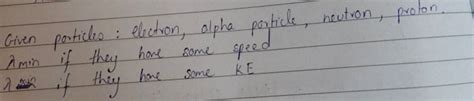 Given particles : electron, alpha particle, neutron, proton.
λ min if they have same speed
λ if they have same KE